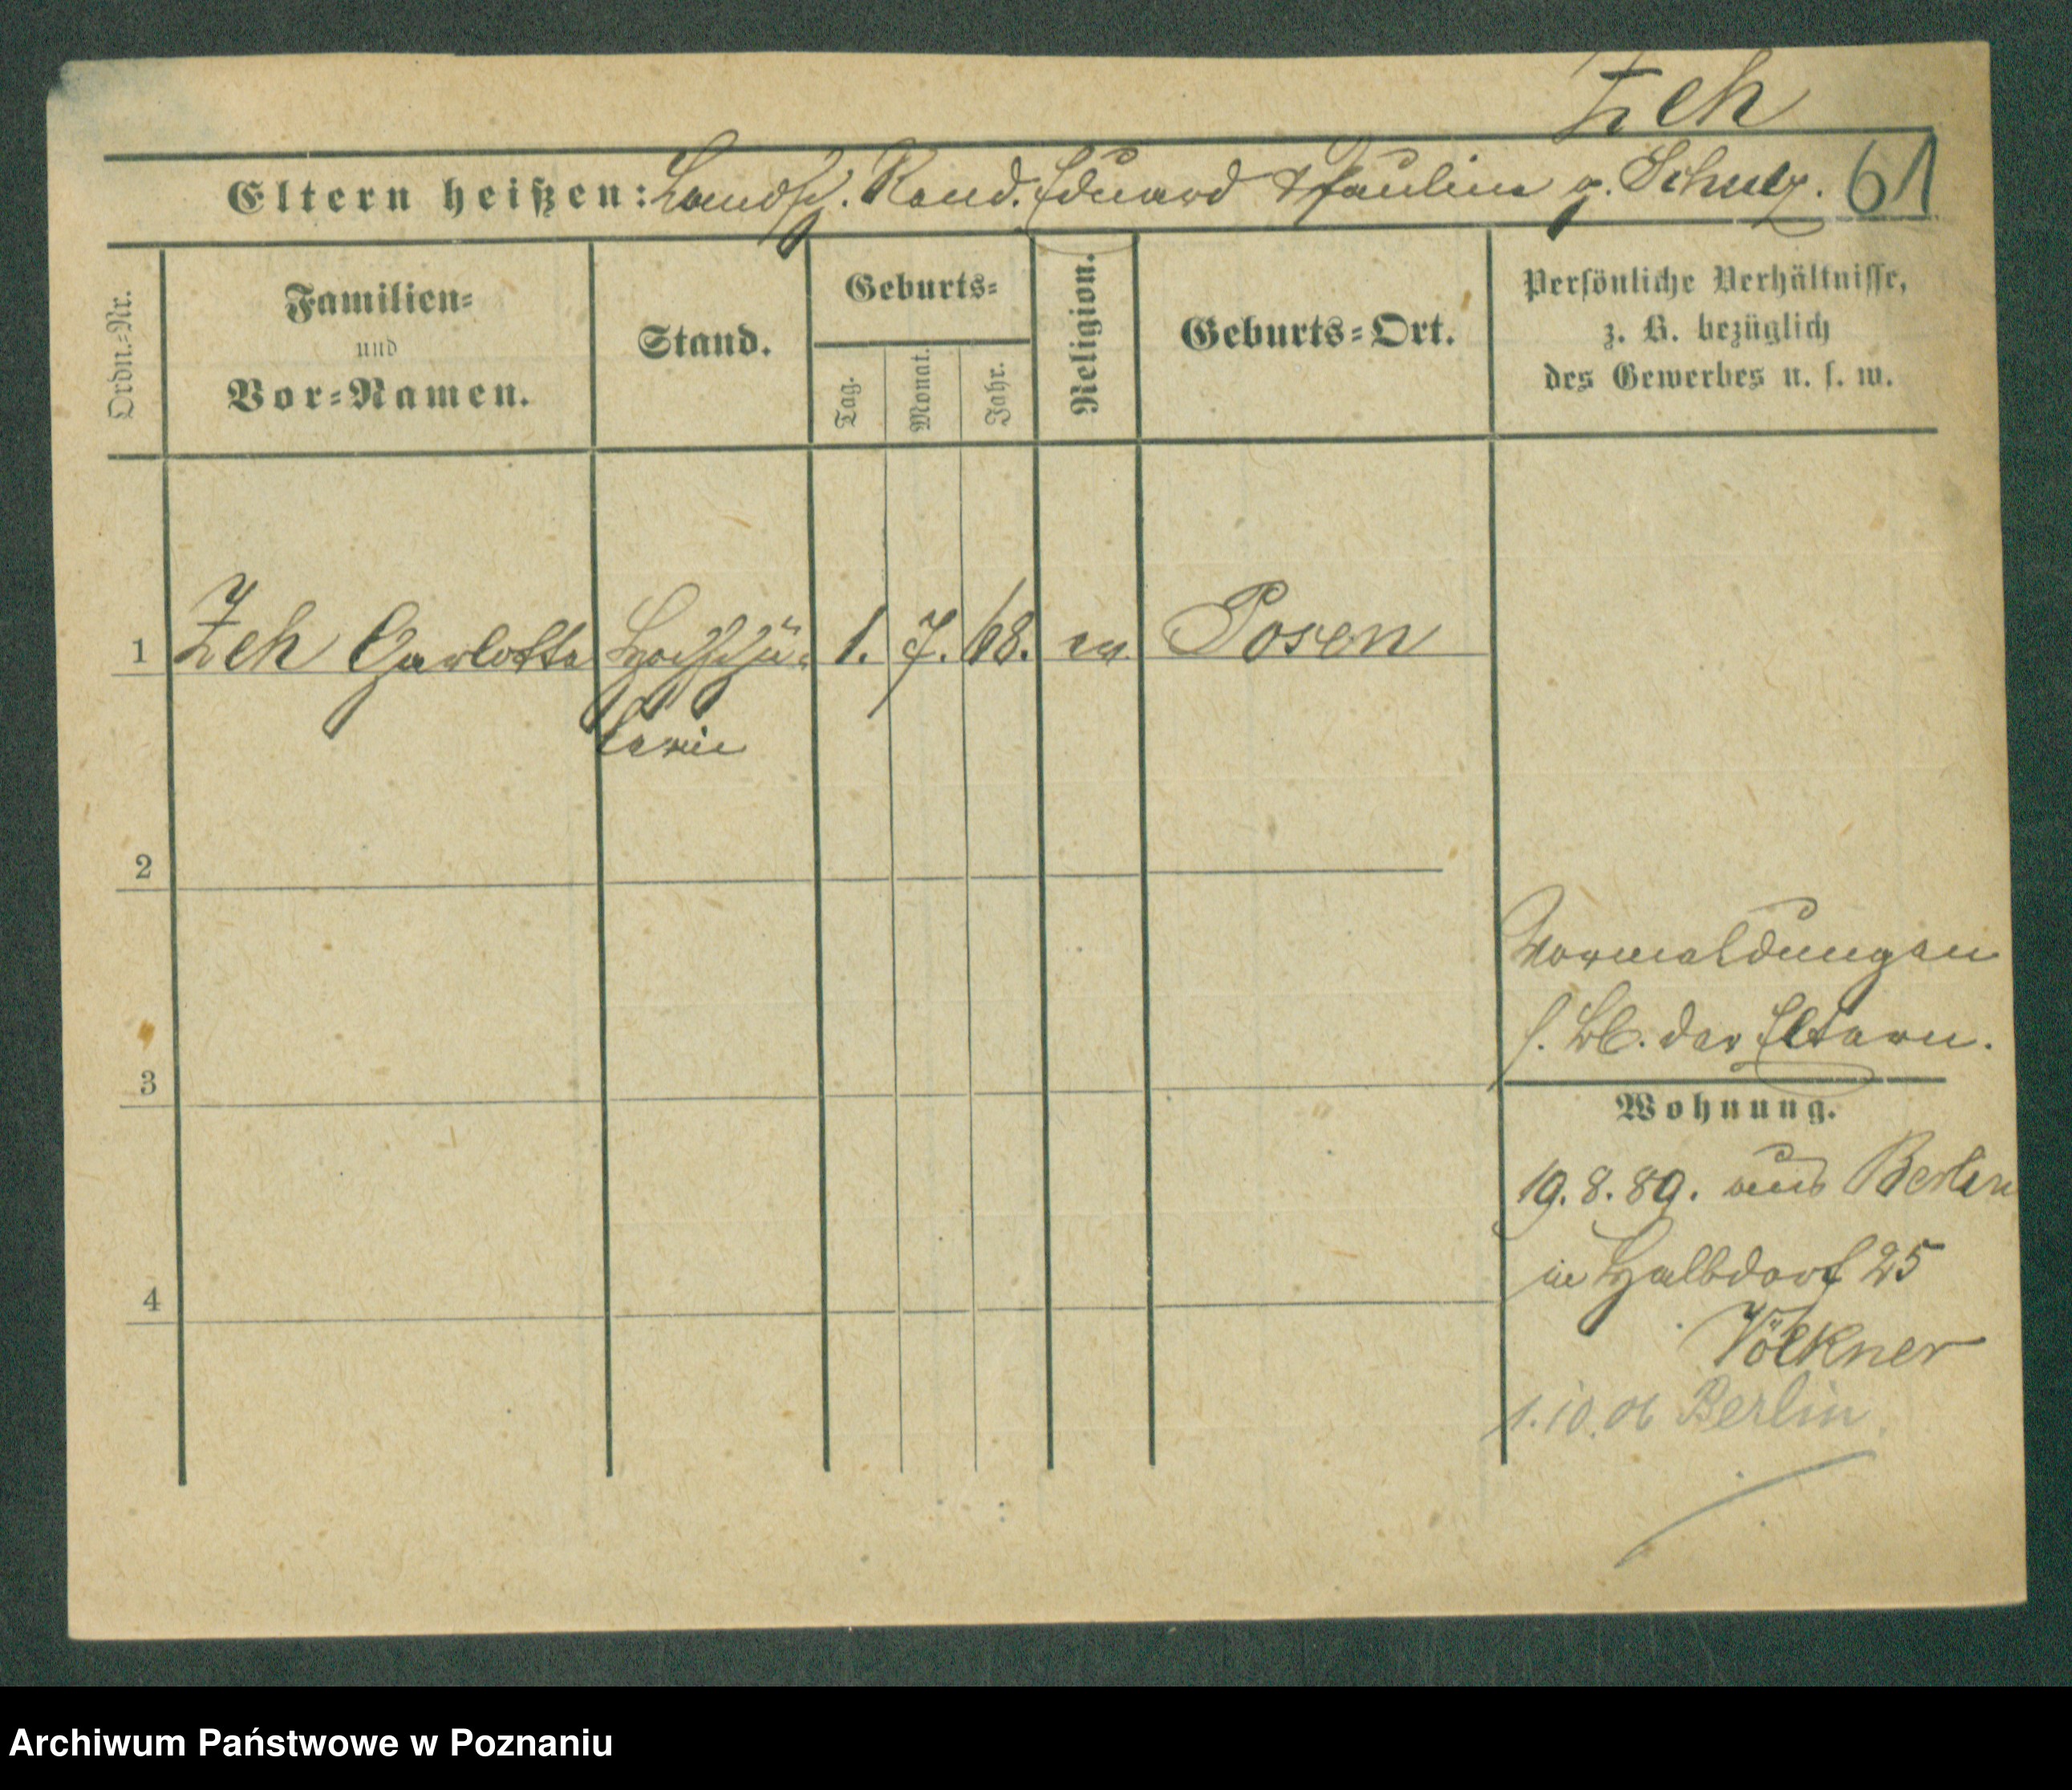 Zeh
Eltern heißen: Landsch. Rend. Eduard & Pauline g. Schulz. 61
Ordn.-Nr.
Familien-
und
Vor-Namen.
Stand.
Geburts-
Tag.
Monat.
Jahr.
Religion.
Geburts-Ort.
Persönliche Verhältnisse,
z. B. bezüglich
des Gewerbes u. s. w.
1 Zeh Charlotte Hochschü- 1. 7. 68. ev. Posen
lerin
2
3
4
Vormeldungen
s. Bl. der Eltern.
Wohnung.
19. 8. 89. aus Berlin
in Halbdorf 25
Völkner
1.10.06 Berlin
Archiwum Państwowe w Poznaniu